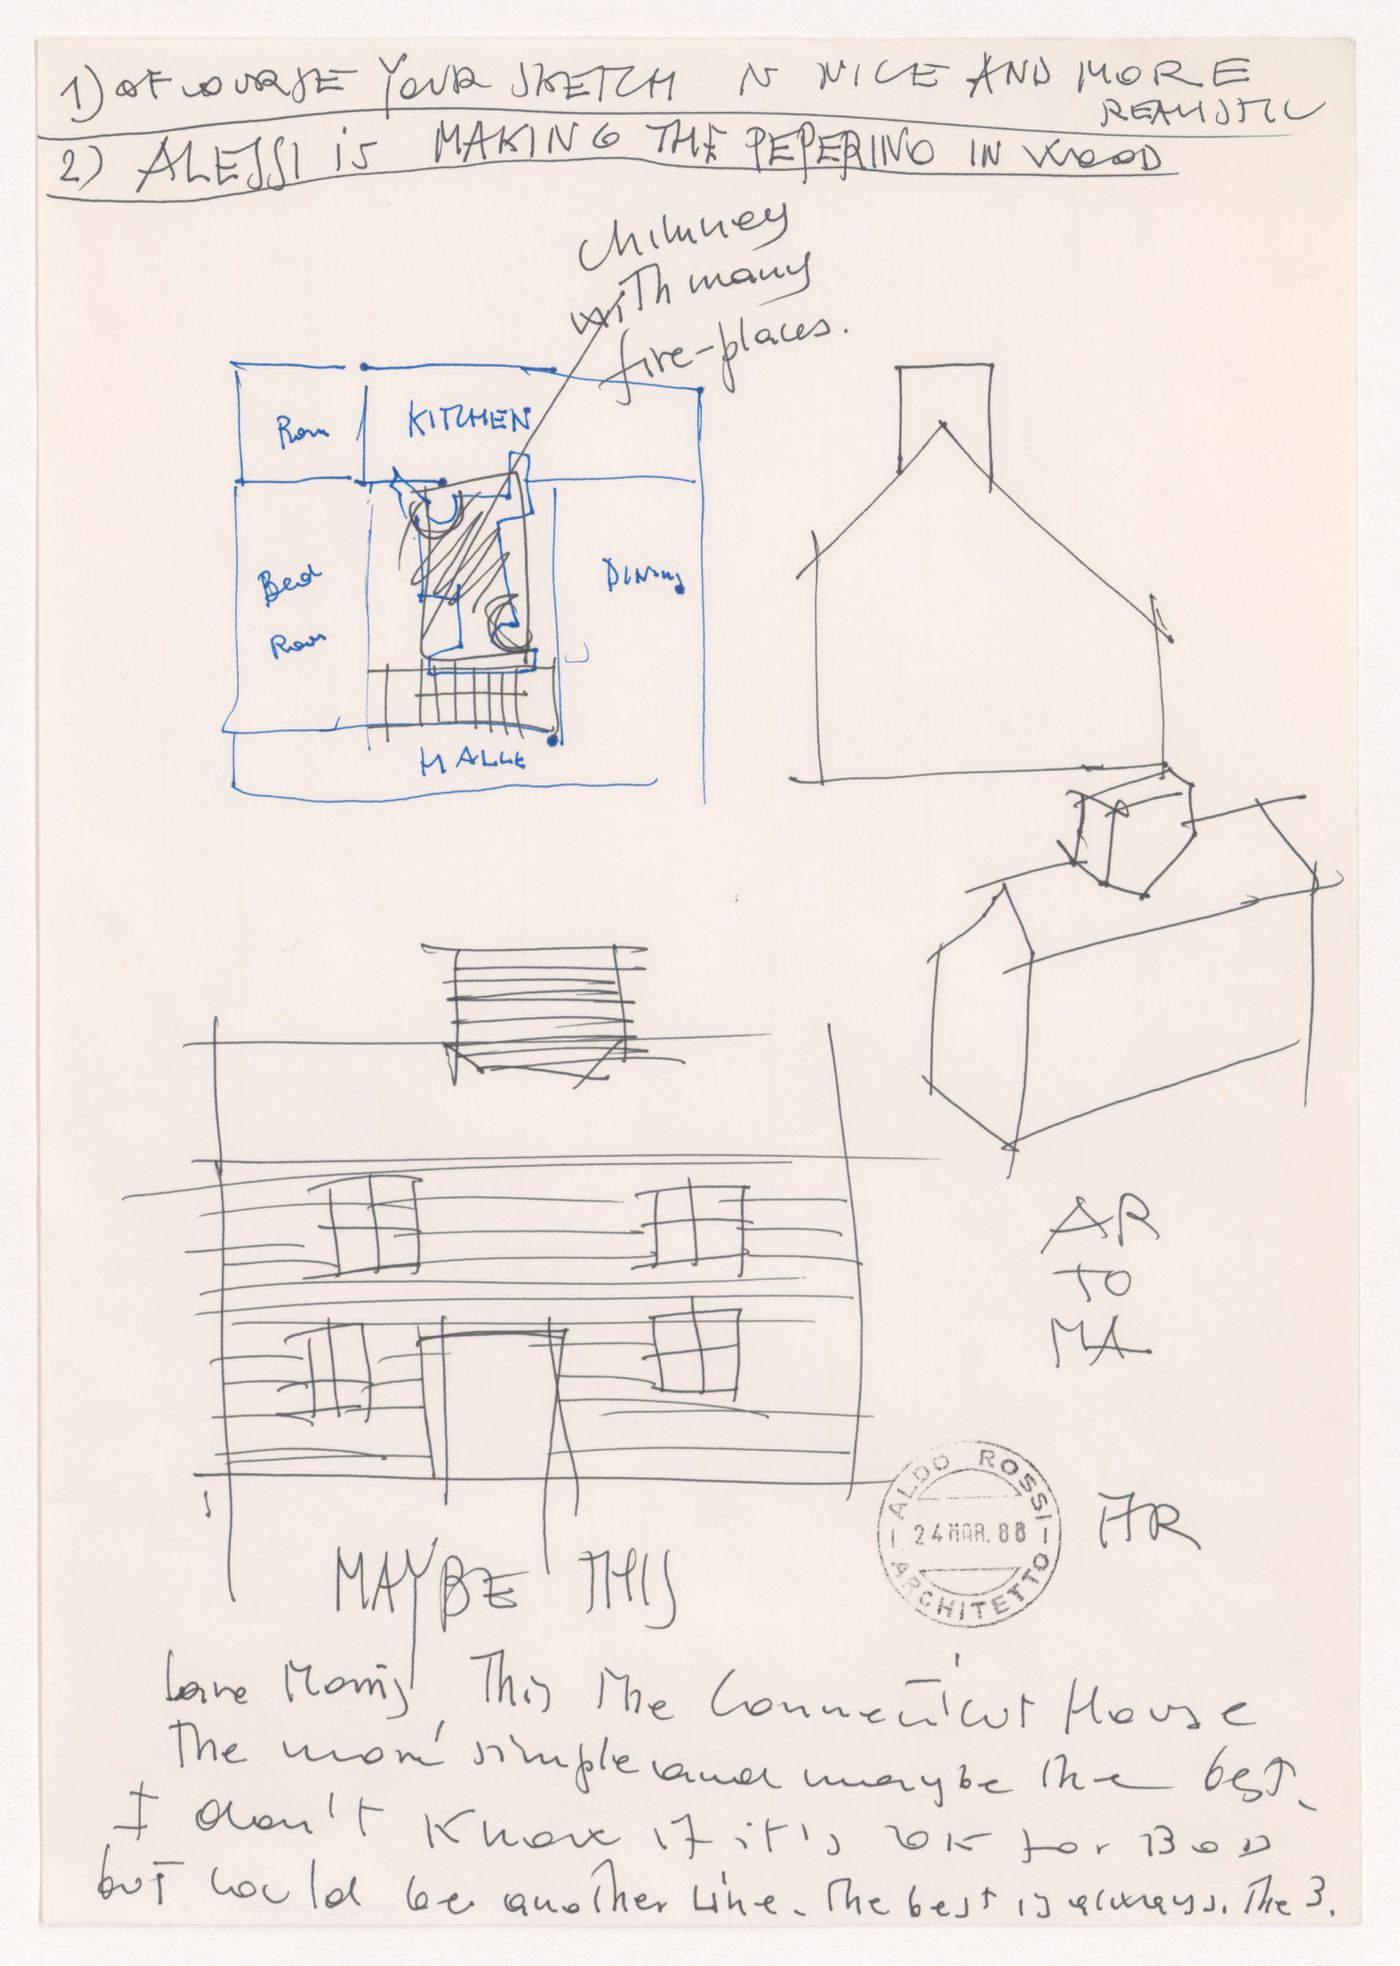 1) OF COURSE YOUR SKETCH IS NICE AND MORE
REALISTIC
2) ALESSI is MAKING THE PEPERINO IN WOOD
chimney
with many
fire-places.
Room
KITCHEN
Bed
Room
DINING
HALLE
AR
TO
MA
ALDO ROSSI
24 MAR. 88
ARCHITETTO
AR
MAYBE THIS
Morris, This the Connecticut House
the more simple and maybe the best.
I don't know if it's OK for BOD
but could be another line. The best is always. The 3.